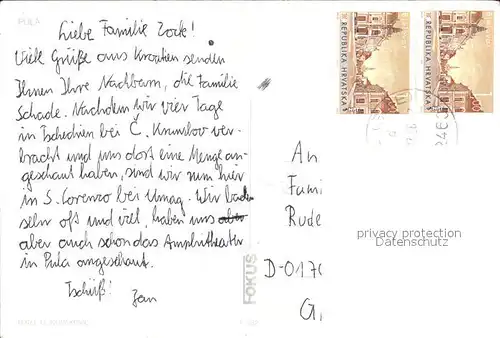 PULA
Liebe Familie Zock!
Viele Grüße aus Kroatien senden
Ihnen Ihre Nachbarn, die Familie
Schade. Nachdem wir vier Tage
in Tschechien bei Č. Krumlov ver-
bracht und uns dort eine Menge an-
geschaut haben, sind wir nun hier
in S. Lorenzo bei Umag. Wir baden
sehr oft und viel, haben uns aber
aber auch schon das Amphitheater
in Pula angeschaut.
Tschüß! Jan
FOKUS
REPUBLIKA HRVATSKA
REPUBLIKA HRVATSKA
An
Fami
Rude
D-0170
G
privacy protection
Datenschutz